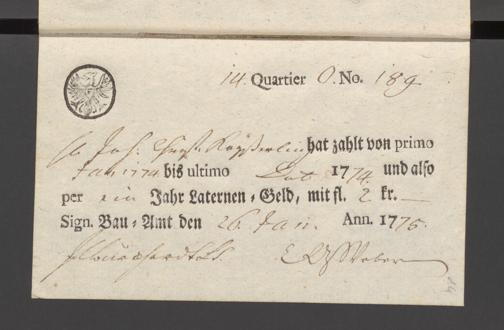 14. Quartier O. No. 189
hat zahlt von primo
Jan 1774 bis ultimo 1774. und also
per ein Jahr Laternen-Geld, mit fl. 2 kr. —
Sign. Bau-Amt den 26. Jan. Ann. 1775.
Weber